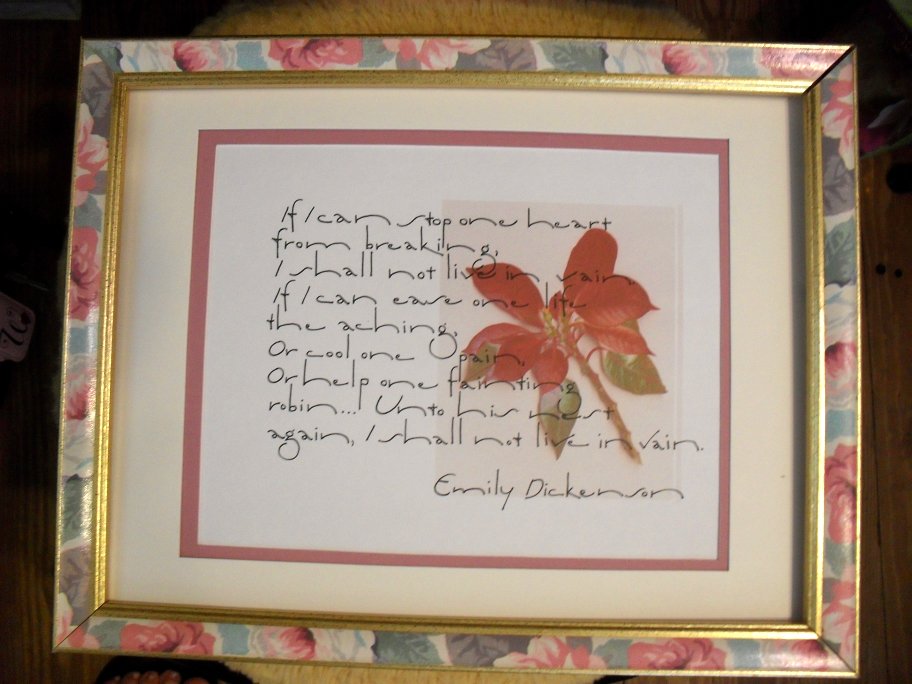 If I can stop one heart
from breaking,
I shall not live in vain.
If I can ease one life
the aching,
Or cool one pain,
Or help one fainting
robin... Unto his nest
again, I shall not live in vain.
Emily Dickenson